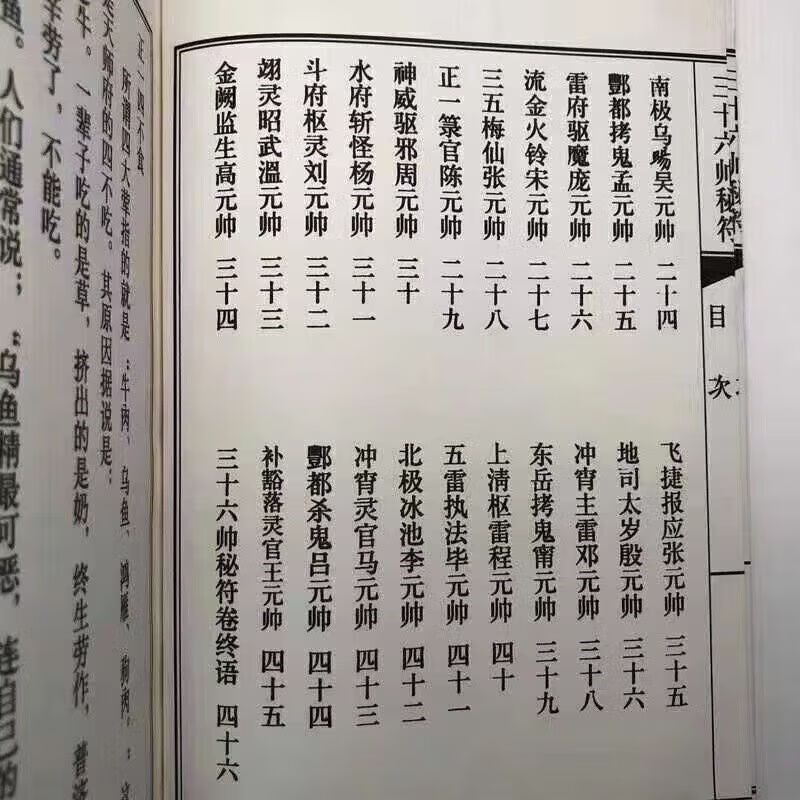 三十六帅秘符
目次
南极乌暘吴元帅 二十四
酆都拷鬼孟元帅 二十五
雷府驱魔庞元帅 二十六
流金火铃宋元帅 二十七
三五梅仙张元帅 二十八
正一箓官陈元帅 二十九
神威驱邪周元帅 三十
水府斩怪杨元帅 三十一
斗府枢灵刘元帅 三十二
翊灵昭武溫元帅 三十三
金阙监生高元帅 三十四
飞捷报应张元帅 三十五
地司太岁殷元帅 三十六
冲宵主雷邓元帅 三十八
东岳拷鬼甯元帅 三十九
上淸枢雷程元帅 四十
五雷执法毕元帅 四十一
北极冰池李元帅 四十二
冲宵灵官马元帅 四十三
酆都杀鬼吕元帅 四十四
补豁落灵官王元帅 四十五
三十六帅秘符卷终语 四十六
正一四不食
所谓四大荤指的就是：牛肉、乌鱼、鸿雁、狗肉。
是天师府的四不吃。其原因据说是：
牛。一辈子吃的是草，挤出的是奶，终生劳作，普
辛劳了，不能吃。
鱼。人们通常说：乌鱼精最可恶，连自己的